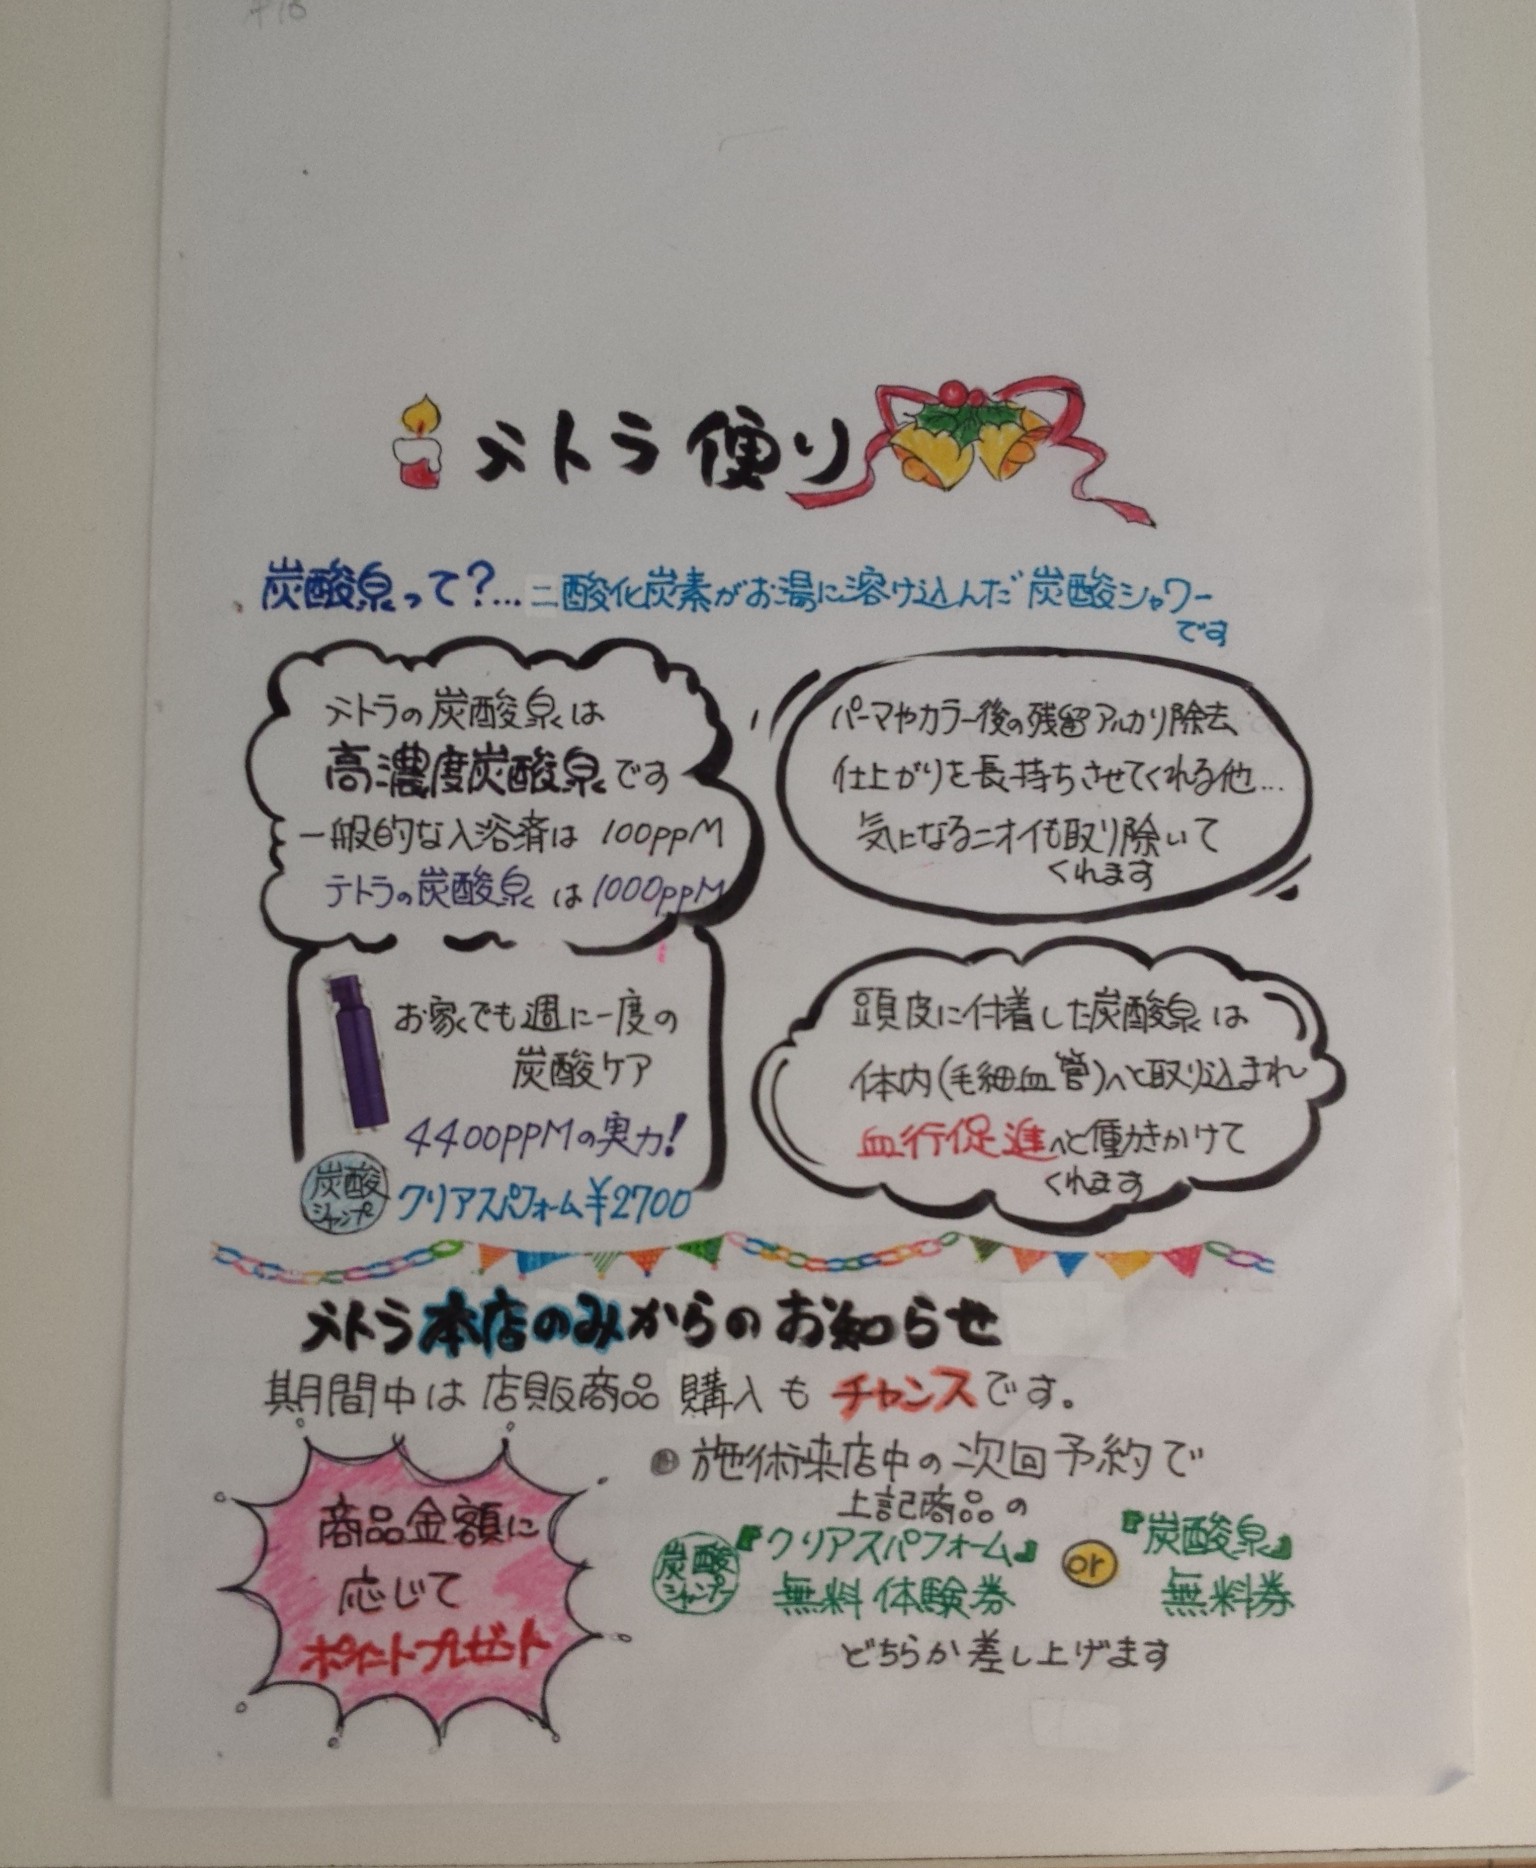 テトラ便り
炭酸泉って?...二酸化炭素がお湯に溶け込んだ炭酸シャワー
です
テトラの炭酸泉は
高濃度炭酸泉です
一般的な入浴済は 100ppM
テトラの炭酸泉は 1000ppM
パーマやカラー後の残留アルカリ除去
仕上がりを長持ちさせてくれる他...
気になるニオイも取り除いて
くれます
お家でも週に一度の
炭酸ケア
4400PPMの実力!
炭酸
シャンプー
クリアスパフォーム¥2700
頭皮に付着した炭酸泉は
体内(毛細血管)へと取り込まれ
血行促進へと働きかけて
くれます
テトラ本店のみからのお知らせ
期間中は店販商品購入もチャンスです。
商品金額に
応じて
ポイントプレゼント
施術来店中の次回予約で
上記商品の
炭酸
シャンプー
『クリアスパフォーム』
無料体験券
or
『炭酸泉』
無料券
どちらか差し上げます